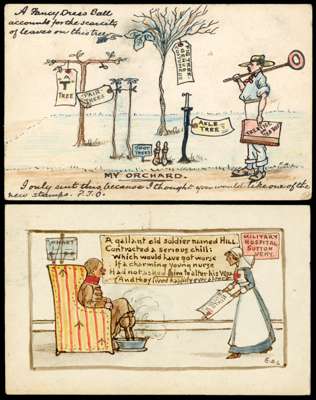 A Fancy Dress Ball
accounts for the scarcity
of leaves on this tree
A
T
TREE
PAIR
TREES
BOOT
TREES
AXLE
TREE
MY ORCHARD.
I only sent this because I thought you would take one of the
new stamps. P.T.O.
CHART
A gallant old soldier named HILL,
Contracted a serious chill;
Which would have got worse
If a charming young nurse
Had not asked him to alter his
(And they lived happily ever after)
MILITARY
HOSPITAL
SUTTON
VENY.
E.G.L.